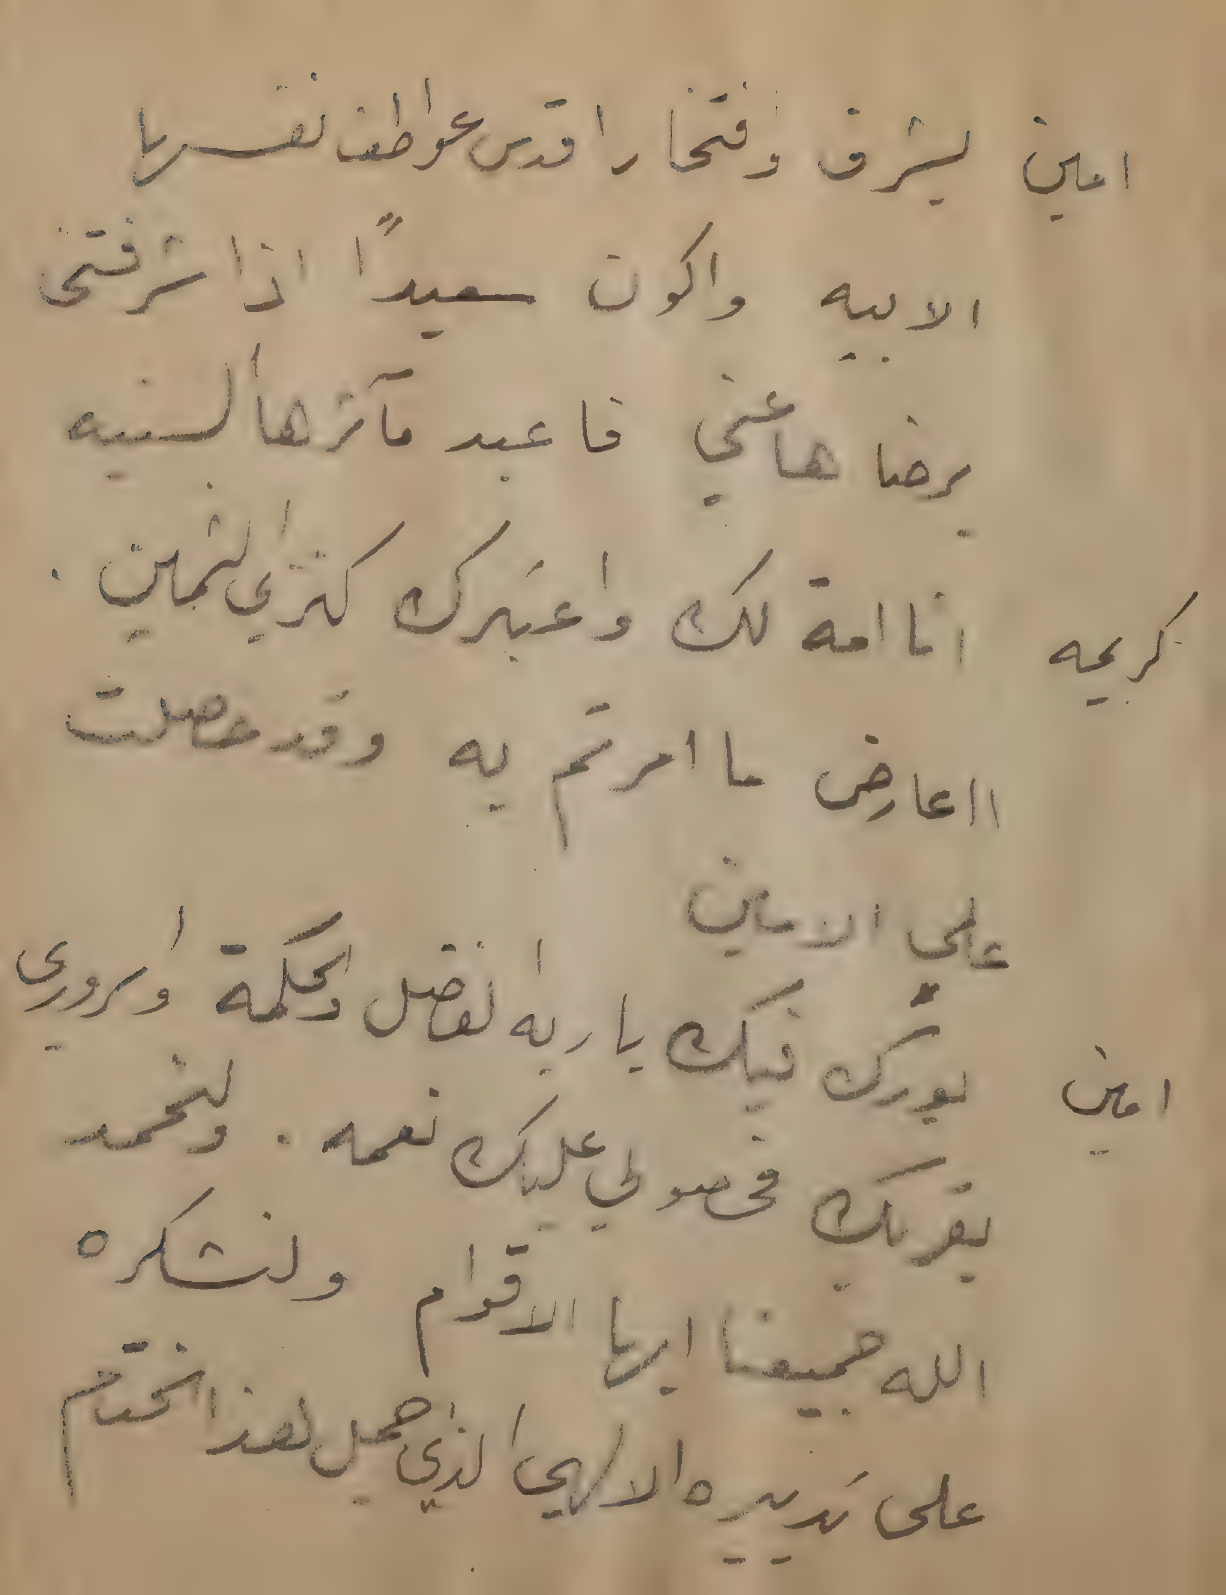 امين بشرف وافتخار اقدس عواطف نفسها
الابيه واكون سعيدًا اذا شرفتني
برضاها عني فاعبد مآثرها السنيه
كريمه انا امة لك واعتبرك كنزي الثمين .
لا اعارض ما امرتم به وقد حصلت
على الامين
امين بورك فيك يا ربه الفضل والحكمة واسروري
بقربك فحصولي عليك نعمه . ولنحمد
الله جميعنا ايها الاقوام ولنشكره
على تدبيره الالهي الذي جمل هذا الختام